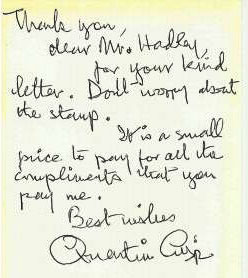 Thank you,
dear Mr. Hadley,
for your kind
letter. Don't worry about
the stamp.
It is a small
price to pay for all the
compliments that you
pay me.
Best wishes
Quentin Crisp